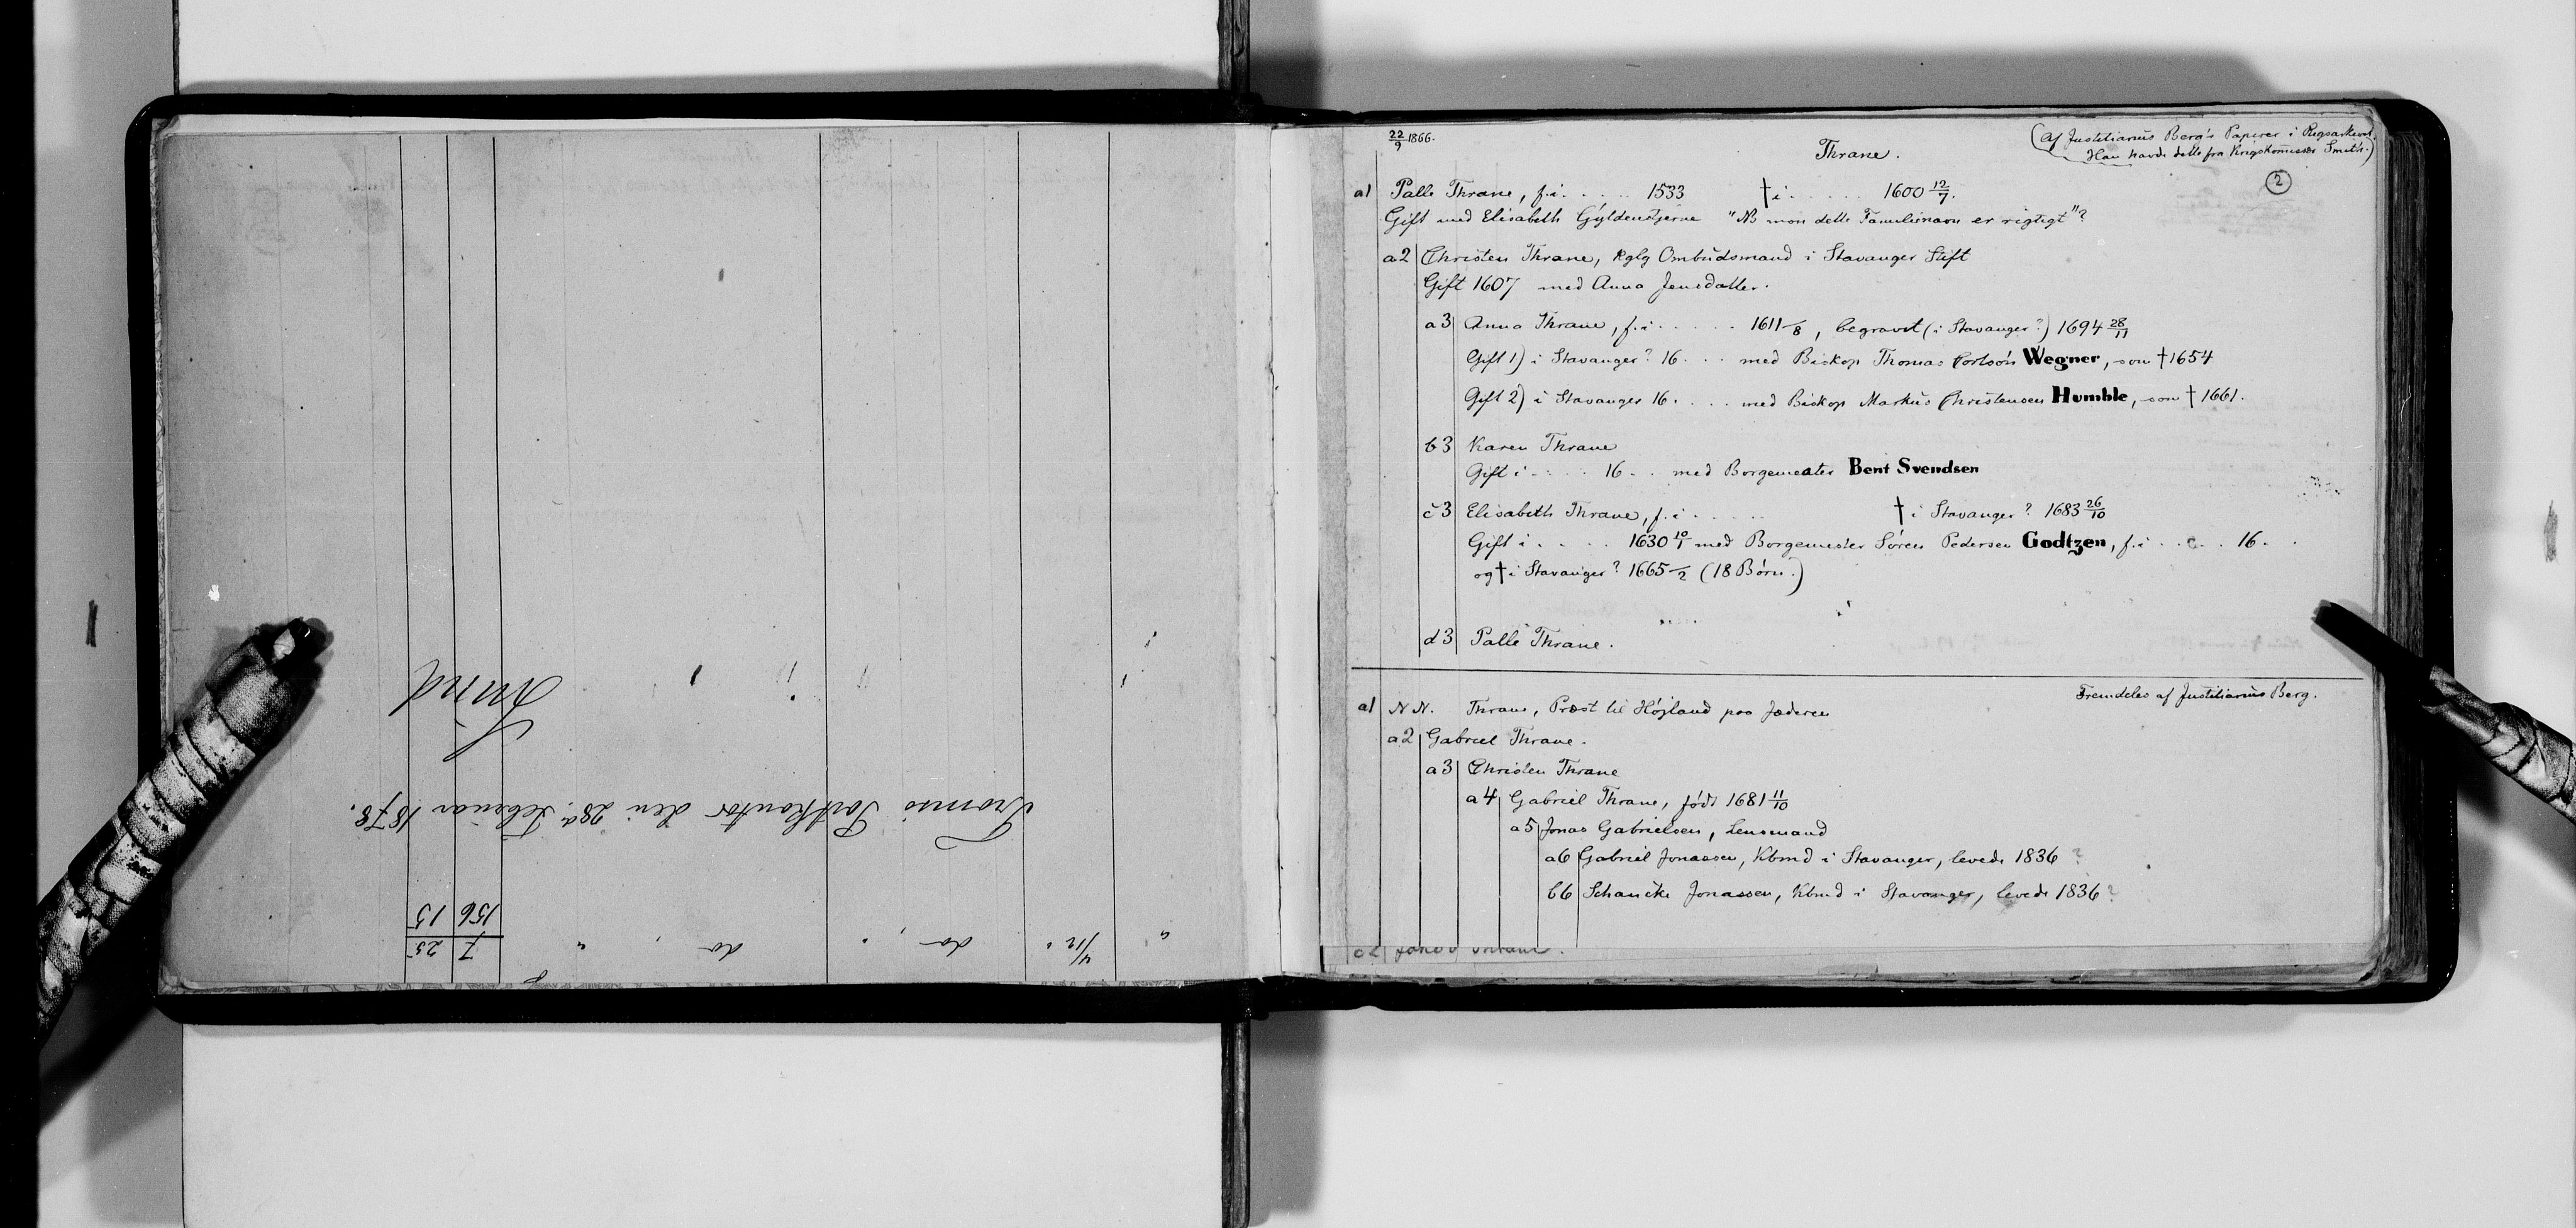 " 4/12 " do " do " 7 25
156 15
Tromsö Postkontor den 28d Februar 1878.
Lund
22/9 1866.
Thrane.
(Af Justitiarius Berg's Papirer i Rigsarkivet.
Han havde dette fra Krigskommissær Smith.)
2
a1 Palle Thrane, f. i . . . . . 1533 † i . . . . . 1600 12/7.
Gift med Elisabeth Gyldenstjerne "NB mon dette Familienavn er rigtigt"?
a2 Christen Thrane, kglg Ombudsmand i Stavanger Stift
Gift 1607 med Anna Jensdatter.
a3 Anna Thrane, f. i . . . . . 1611 /8, begravet (i Stavanger?) 1694 28/11
Gift 1) i Stavanger? 16 . . . med Biskop Thomas Cortsön Wegner, som † 1654
Gift 2) i Stavanger 16 . . . . med Biskop Markus Christensen Humble, som † 1661.
b3 Karen Thrane
Gift i . . . . 16 . . med Borgemester Bent Svendsen
c3 Elisabeth Thrane, f. i . . . . . † i Stavanger? 1683 26/10
Gift i . . . . . 1630 10/1 med Borgemester Sören Pedersen Godtzen, f. i . . . . . 16 . .
og † i Stavanger? 1665 /2 (18 Börn.)
d3 Palle Thrane.
Fremdeles af Justitiarius Berg.
a1 N N. Thrane, Præst til Højland paa Jæderen
a2 Gabriel Thrane.
a3 Christen Thrane
a4 Gabriel Thrane, født 1681 11/10
a5 Jonas Gabrielsen, Lensmand
a6 Gabriel Jonassen, Kbmd i Stavanger, levede 1836?
b6 Schancke Jonassen, Kbmd i Stavanger, levede 1836?
c2 Jakob Thrane.